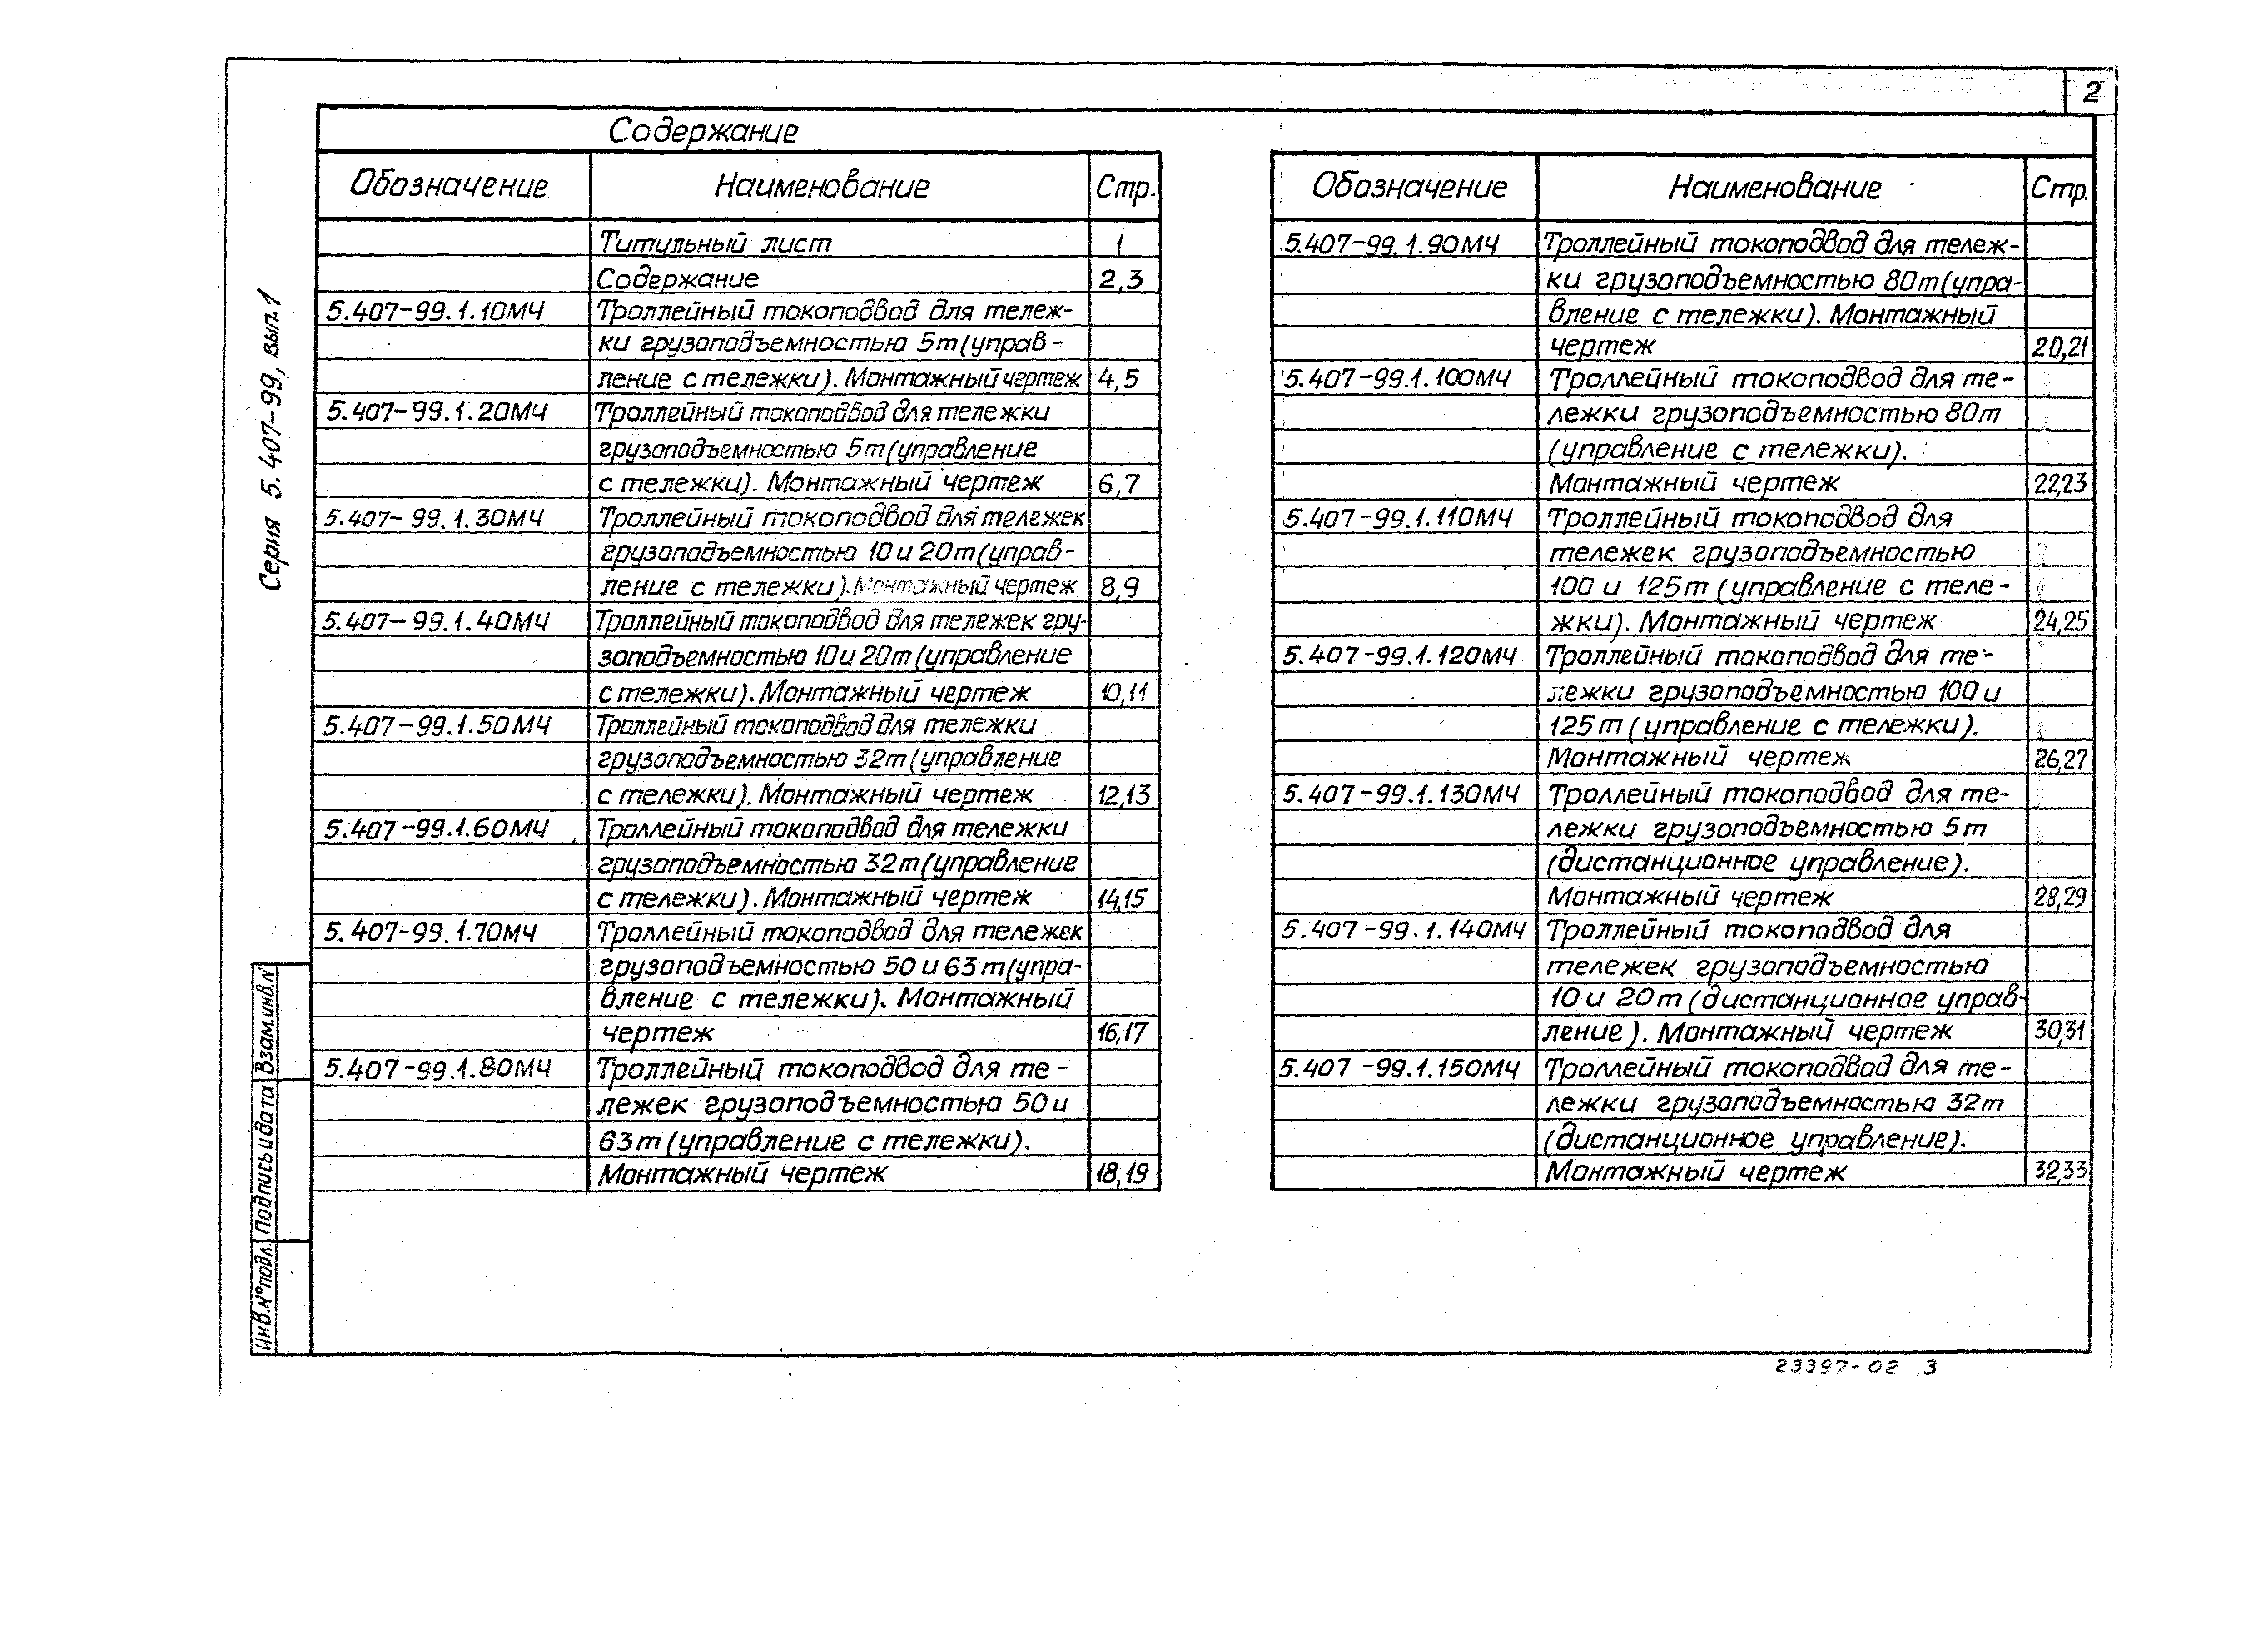 2
Содержание
Обозначение Наименование Стр.
Титульный лист 1
Содержание 2,3
5.407-99.1.10МЧ Троллейный токоподвод для тележ-
ки грузоподъемностью 5т(управ-
ление с тележки). Монтажный чертеж 4,5
5.407-99.1.20МЧ Троллейный токоподвод для тележки
грузоподъемностью 5т(управление
с тележки). Монтажный чертеж 6,7
5.407-99.1.30МЧ Троллейный токоподвод для тележек
грузоподъемностью 10 и 20т(управ-
ление с тележки). Монтажный чертеж 8,9
5.407-99.1.40МЧ Троллейный токоподвод для тележек гру-
зоподъемностью 10 и 20т (управление
с тележки). Монтажный чертеж 10,11
5.407-99.1.50МЧ Троллейный токоподвод для тележки
грузоподъемностью 32т(управление
с тележки). Монтажный чертеж 12,13
5.407-99.1.60МЧ Троллейный токоподвод для тележки
грузоподъемностью 32т(управление
с тележки). Монтажный чертеж 14,15
5.407-99.1.70МЧ Троллейный токоподвод для тележек
грузоподъемностью 50 и 63т(упра-
вление с тележки). Монтажный
чертеж 16,17
5.407-99.1.80МЧ Троллейный токоподвод для те-
лежек грузоподъемностью 50 и
63т(управление с тележки).
Монтажный чертеж 18,19
Обозначение Наименование Стр.
5.407-99.1.90МЧ Троллейный токоподвод для тележ-
ки грузоподъемностью 80т(упра-
вление с тележки). Монтажный
чертеж 20,21
5.407-99.1.100МЧ Троллейный токоподвод для те-
лежки грузоподъемностью 80т
(управление с тележки).
Монтажный чертеж 22,23
5.407-99.1.110МЧ Троллейный токоподвод для
тележек грузоподъемностью
100 и 125т (управление с теле-
жки). Монтажный чертеж 24,25
5.407-99.1.120МЧ Троллейный токоподвод для те-
лежки грузоподъемностью 100 и
125т (управление с тележки).
Монтажный чертеж 26,27
5.407-99.1.130МЧ Троллейный токоподвод для те-
лежки грузоподъемностью 5т
(дистанционное управление).
Монтажный чертеж 28,29
5.407-99.1.140МЧ Троллейный токоподвод для
тележек грузоподъемностью
10 и 20т (дистанционное управ-
ление). Монтажный чертеж 30,31
5.407-99.1.150МЧ Троллейный токоподвод для те-
лежки грузоподъемностью 32т
(дистанционное управление).
Монтажный чертеж 32,33
Серия 5.407-99, вып.1
Взам.инв.N
Подпись и дата
Инв.N°подл.
23397-02 3